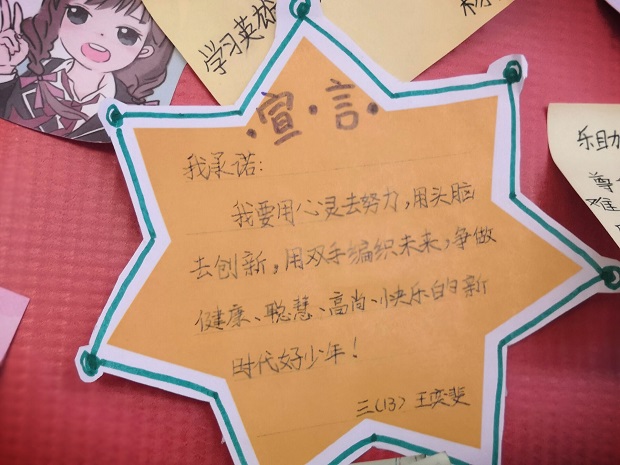 学习英雄
宣·言
我承诺:
我要用心灵去努力,用头脑
去创新,用双手编织未来,争做
健康、聪慧、高尚、快乐的新
时代好少年!
三(13) 王奕斐
乐助
尊
难